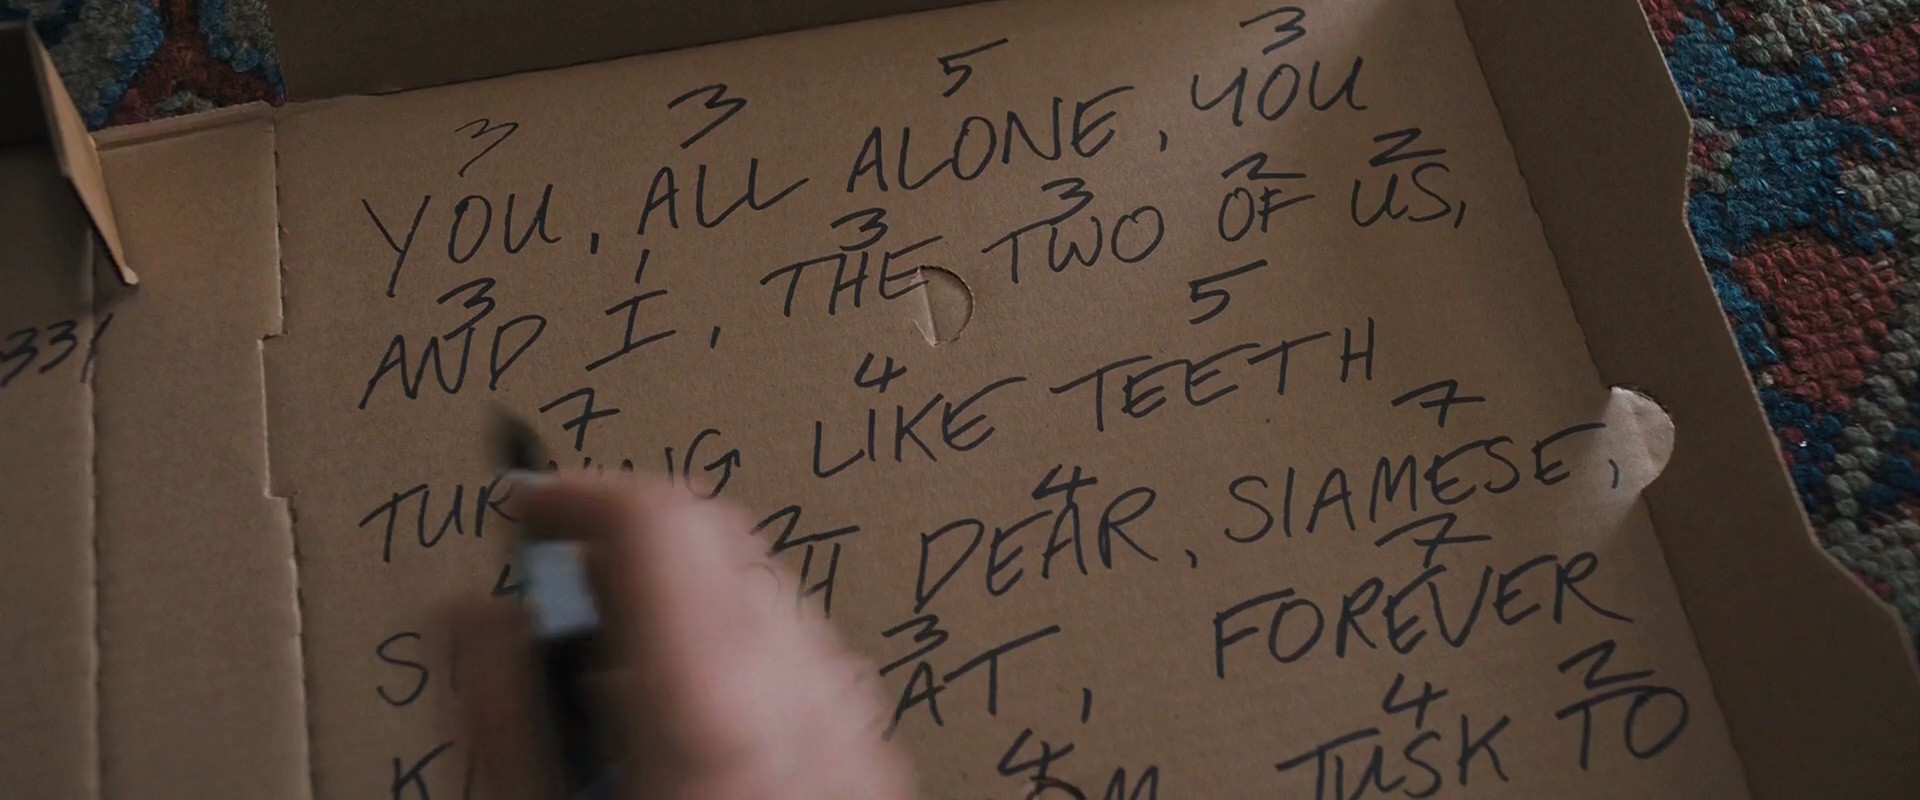 3 3 5 3
YOU, ALL ALONE, YOU
3 1 3 3 2 2
AND I, THE TWO OF US,
7 4 5
LIKE TEETH
4 2 4 7
DEAR, SIAMESE,
3 7
AT, FOREVER
4 4 2
TUSK TO
331